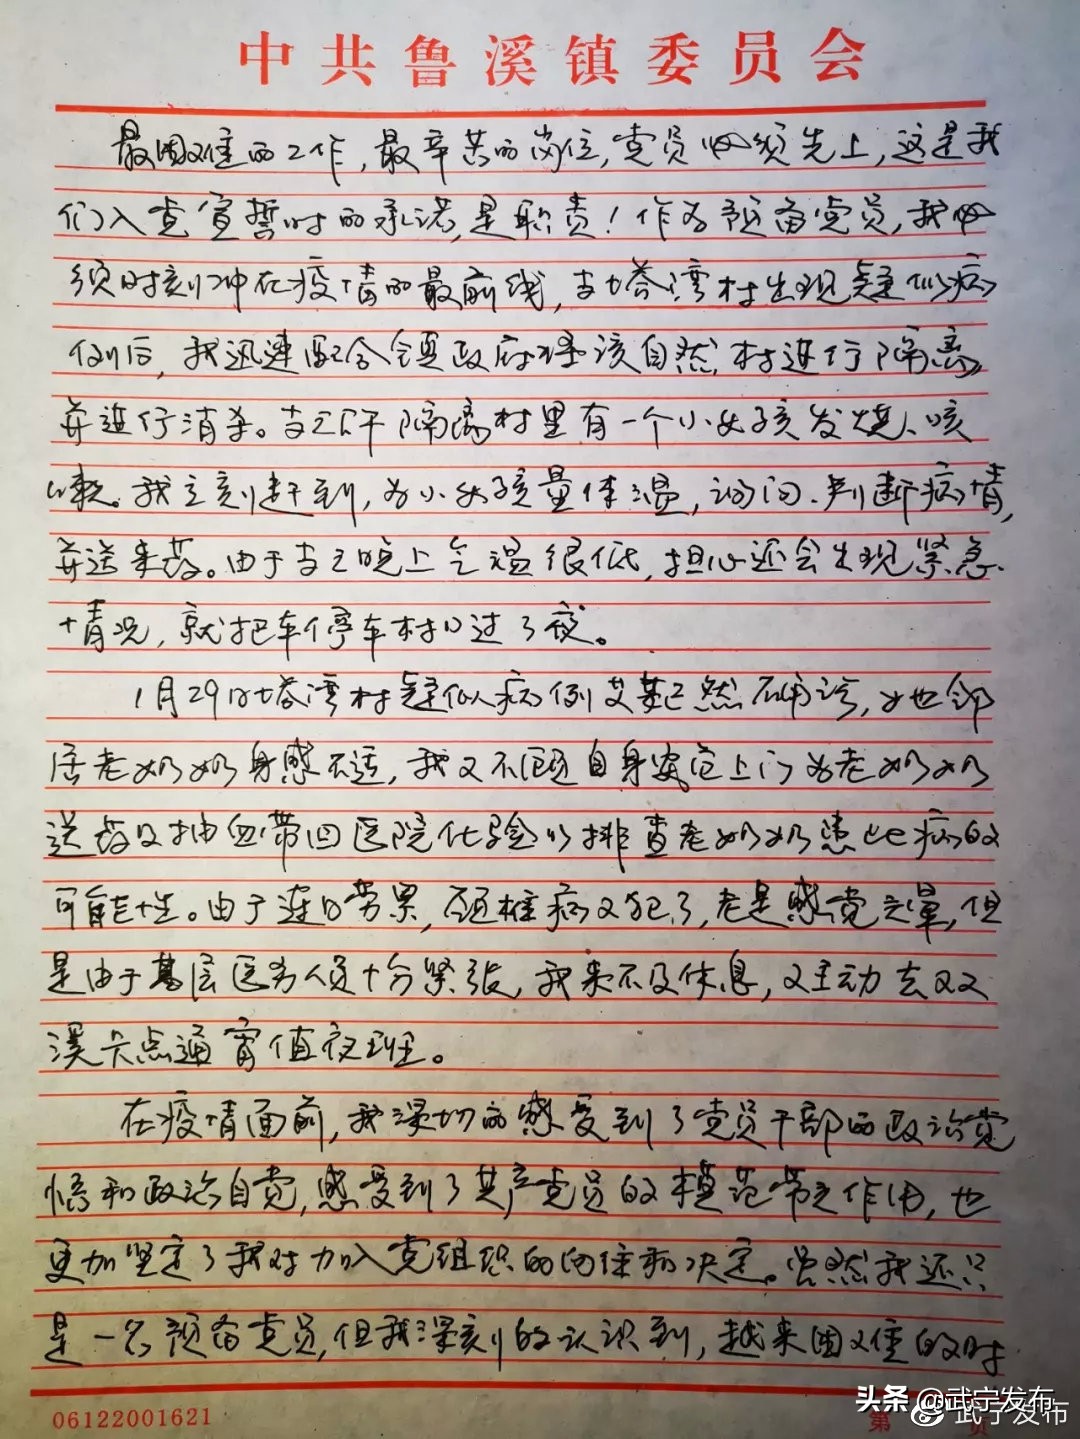 中共鲁溪镇委员会
最困难的工作，最辛苦的岗位，党员必须先上，这是我
们入党宣誓时的承诺，是职责！作为预备党员，我必
须时刻冲在疫情的最前线，当塔湾村出现疑似病
例后，我迅速配合镇政府将该自然村进行隔离，
并进行消杀。当天下午隔离村里有一个小女孩发烧、咳
嗽。我立刻赶到，为小女孩量体温，询问、判断病情，
并送来药。由于当天晚上气温很低，担心还会出现紧急
情况，就把车停车村口过了夜。
1月29日塔湾村疑似病例艾某已然确诊，她邻
居老奶奶身感不适，我又不顾自身安危上门为老奶奶
送药及抽血带回医院化验以排查老奶奶患此病的
可能性。由于连日劳累，颈椎病又犯了，老是感觉头晕，但
是由于基层医务人员十分紧张，我来不及休息，又主动去双
溪卡点通宵值夜班。
在疫情面前，我深切的感受到了党员干部的政治觉
悟和政治自觉，感受到了共产党员的模范带头作用，也
更加坚定了我对加入党组织的向往和决定。虽然我还只
是一名预备党员，但我深刻的认识到，越来困难的时
06122001621
第 页
头条@武宁发布
武宁发布